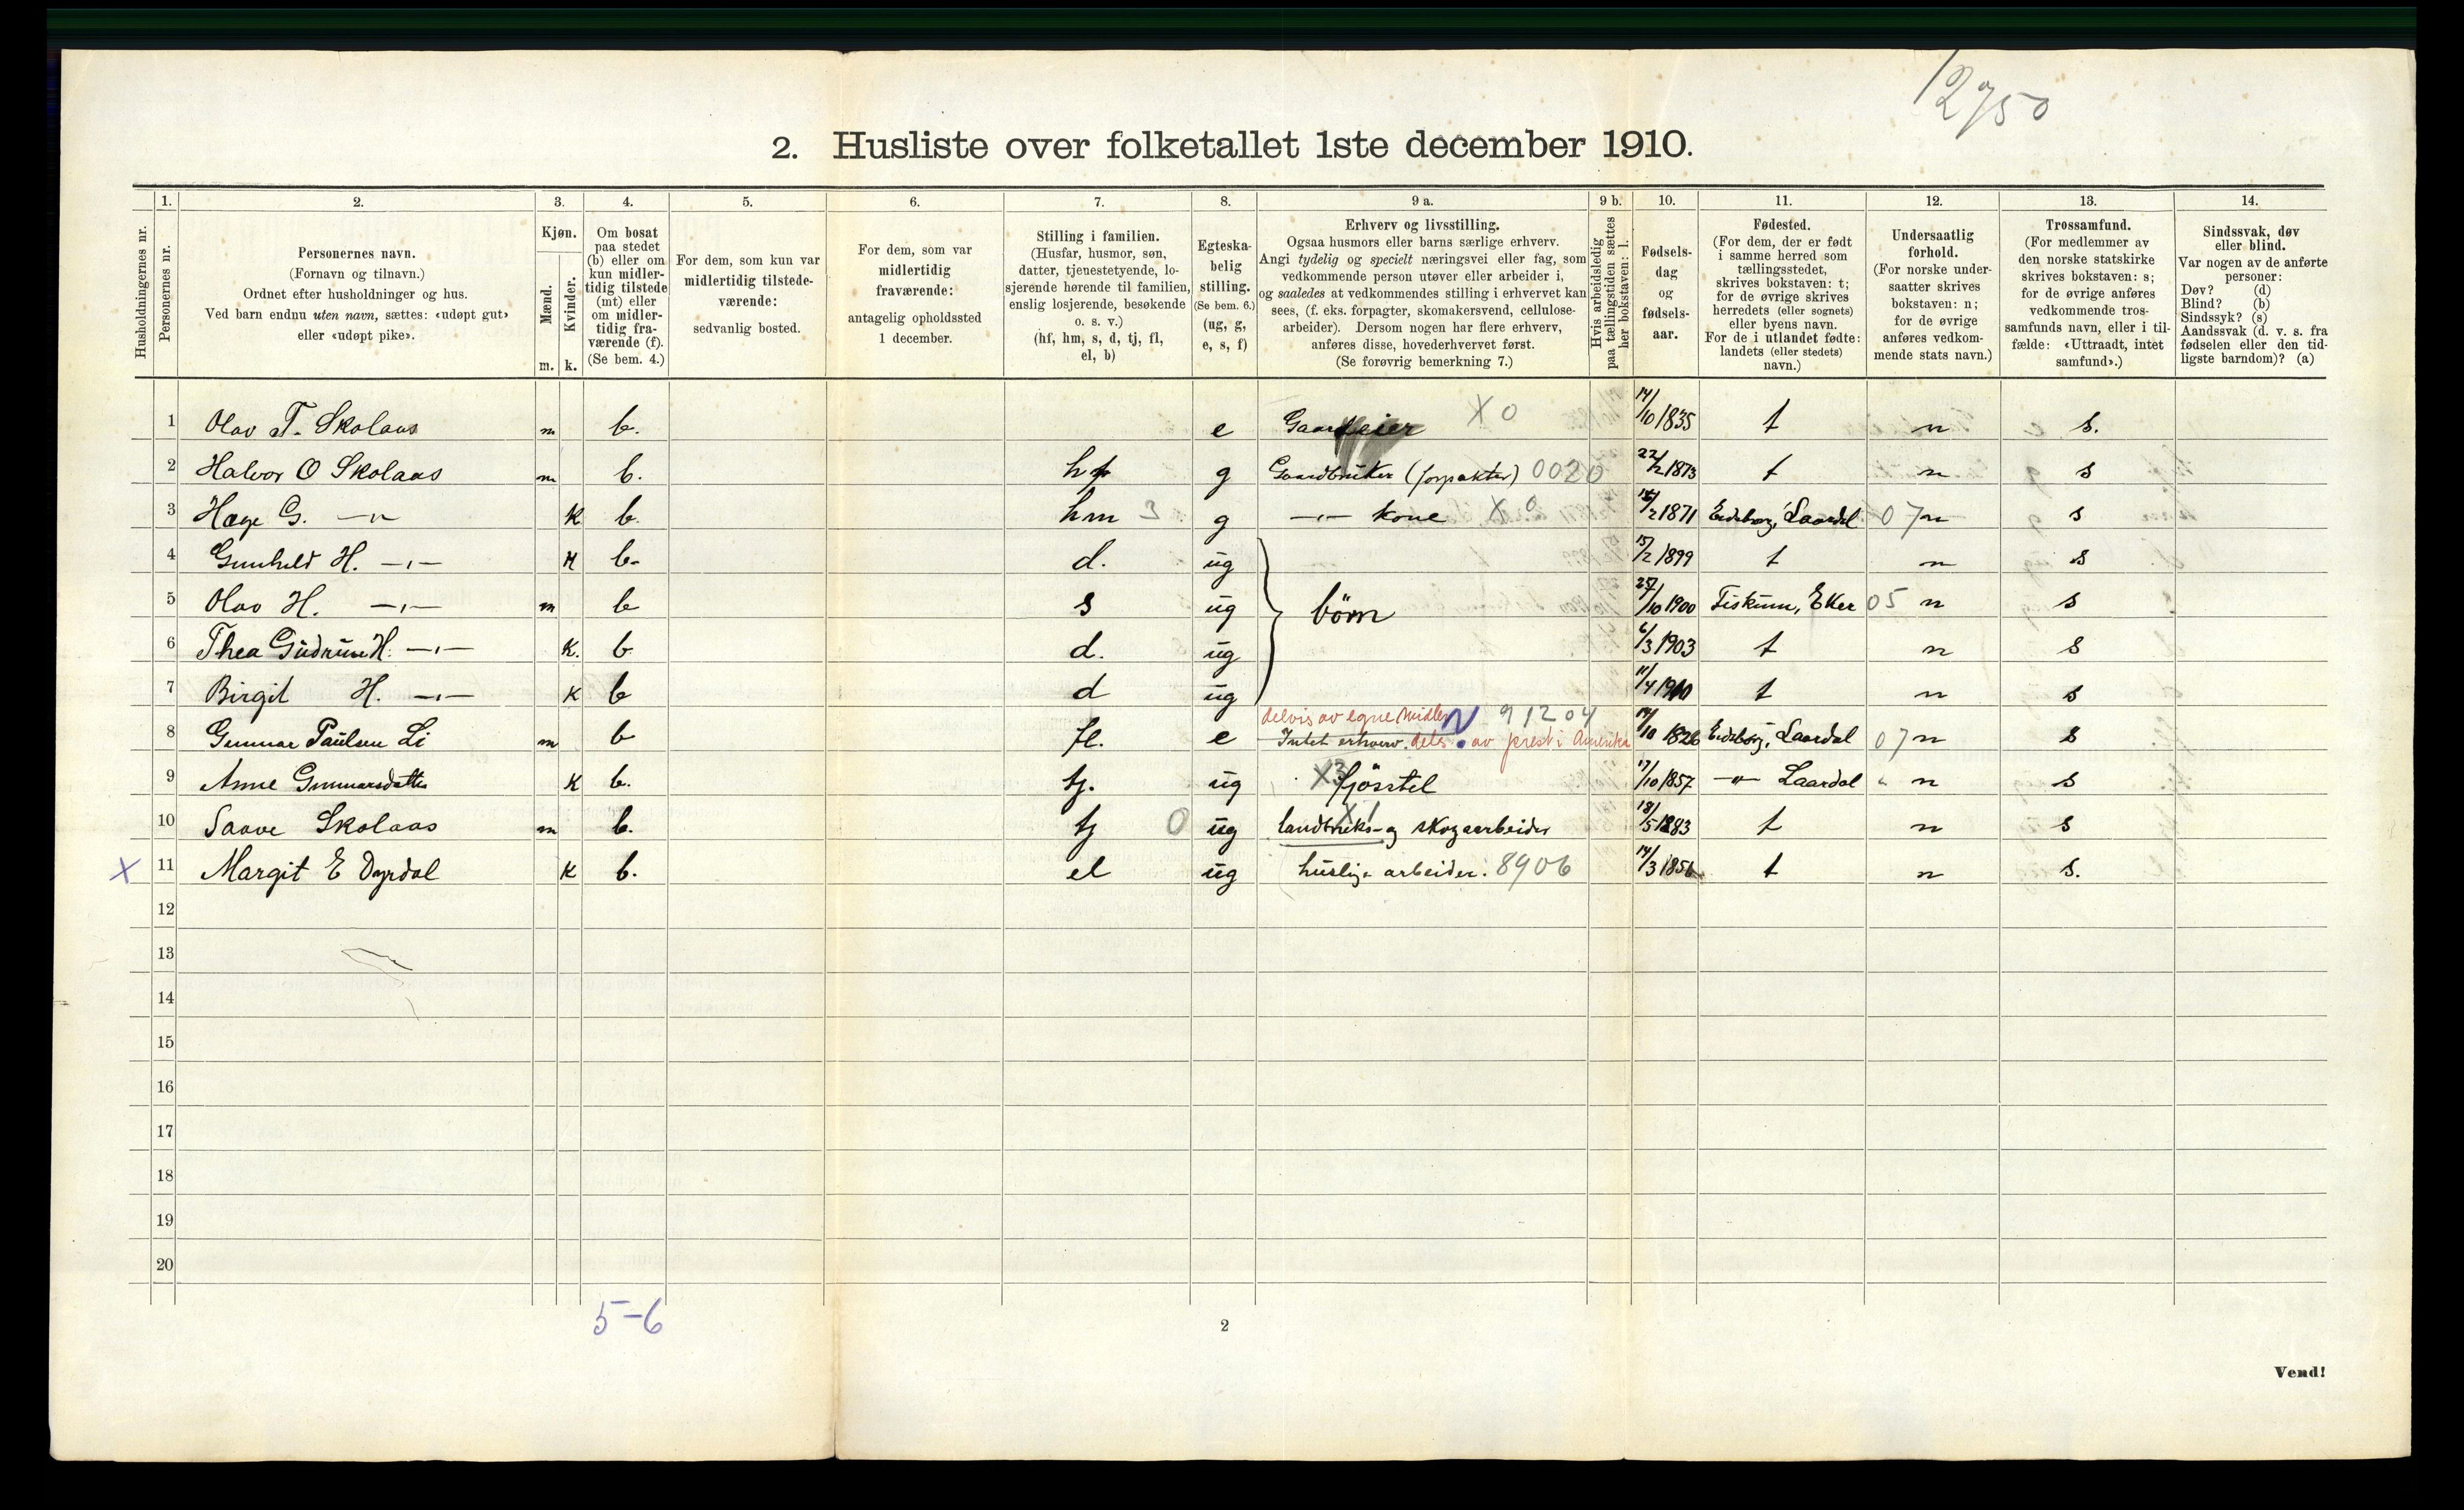 12750
2. Husliste over folketallet 1ste december 1910.
Husholdningernes nr.
1. Personernes nr.
2. Personernes navn.
(Fornavn og tilnavn.)
Ordnet efter husholdninger og hus.
Ved barn endnu uten navn, sættes: «udøpt gut»
eller «udøpt pike».
3. Kjøn.
Mænd. m.
Kvinder. k.
4. Om bosat
paa stedet
(b) eller om
kun midler-
tidig tilstede
(mt) eller
om midler-
tidig fra-
værende (f).
(Se bem. 4.)
5. For dem, som kun var
midlertidig tilstede-
værende:
sedvanlig bosted.
6. For dem, som var
midlertidig
fraværende:
antagelig opholdssted
1 december.
7. Stilling i familien.
(Husfar, husmor, søn,
datter, tjenestetyende, lo-
sjerende hørende til familien,
enslig losjerende, besøkende
o. s. v.)
(hf, hm, s, d, tj, fl,
el, b)
8. Egteska-
belig
stilling.
(Se bem. 6.)
(ug, g,
e, s, f)
9 a. Erhverv og livsstilling.
Ogsaa husmors eller barns særlige erhverv.
Angi tydelig og specielt næringsvei eller fag, som
vedkommende person utøver eller arbeider i,
og saaledes at vedkommendes stilling i erhvervet kan
sees, (f. eks. forpagter, skomakersvend, cellulose-
arbeider). Dersom nogen har flere erhverv,
anføres disse, hovederhvervet først.
(Se forøvrig bemerkning 7.)
9 b. Hvis arbeidsledig
paa tællingstiden sættes
her bokstaven: l.
10. Fødsels-
dag
og
fødsels-
aar.
11. Fødested.
(For dem, der er født
i samme herred som
tællingsstedet,
skrives bokstaven: t;
for de øvrige skrives
herredets (eller sognets)
eller byens navn.
For de i utlandet fødte:
landets (eller stedets)
navn.)
12. Undersaatlig
forhold.
(For norske under-
saatter skrives
bokstaven: n;
for de øvrige
anføres vedkom-
mende stats navn.)
13. Trossamfund.
(For medlemmer av
den norske statskirke
skrives bokstaven: s;
for de øvrige anføres
vedkommende tros-
samfunds navn, eller i til-
fælde: «Uttraadt, intet
samfund».)
14. Sindssvak, døv
eller blind.
Var nogen av de anførte
personer:
Døv? (d)
Blind? (b)
Sindssyk? (s)
Aandssvak (d. v. s. fra
fødselen eller den tid-
ligste barndom)? (a)
1 Olav T. Skolaas m b. e Gaardeier X 0 14/10 1835 t n s.
2 Halvor O Skolaas m b. hf g Gaardbruker (forpakter) 0020 22/2 1873 t n s
3 Hæge G. -"- K b. hm 3 g -"- kone X 0 /2 1871 Eidsborg, Laardal 07 n s
4 Gunhild H. -"- K b. d. ug 15/2 1899 t n s
5 Olav H. -"- m b s ug börn 27/10 1900 Fiskum, Eker 05 n s
6 Thea Gudrun H. -"- K. b d. ug 6/3 1903 t n s
7 Birgit H. -"- K b d ug 11/4 1910 t n s
delvis av egne midler N 91204
8 Gunnar Paulsen Li m b fl. e Intet erhverv. dels av prest i Amerika 14/10 1826 Eidsborg, Laardal 07 n s
9 Anne Gunnarsdatter K b. tj. ug X3 fjösstel 17/10 1857 -"- Laardal " n s
10 Saave Skolaas m b. tj 0 ug X 1 landbruks- og skogsarbeider 18/5 1883 t n s
X 11 Margit E Dyrdal K b. el ug huslige arbeider. 8906 14/3 1856 t n s.
12
13
14
15
16
17
18
19
20
5-6
2
Vend!